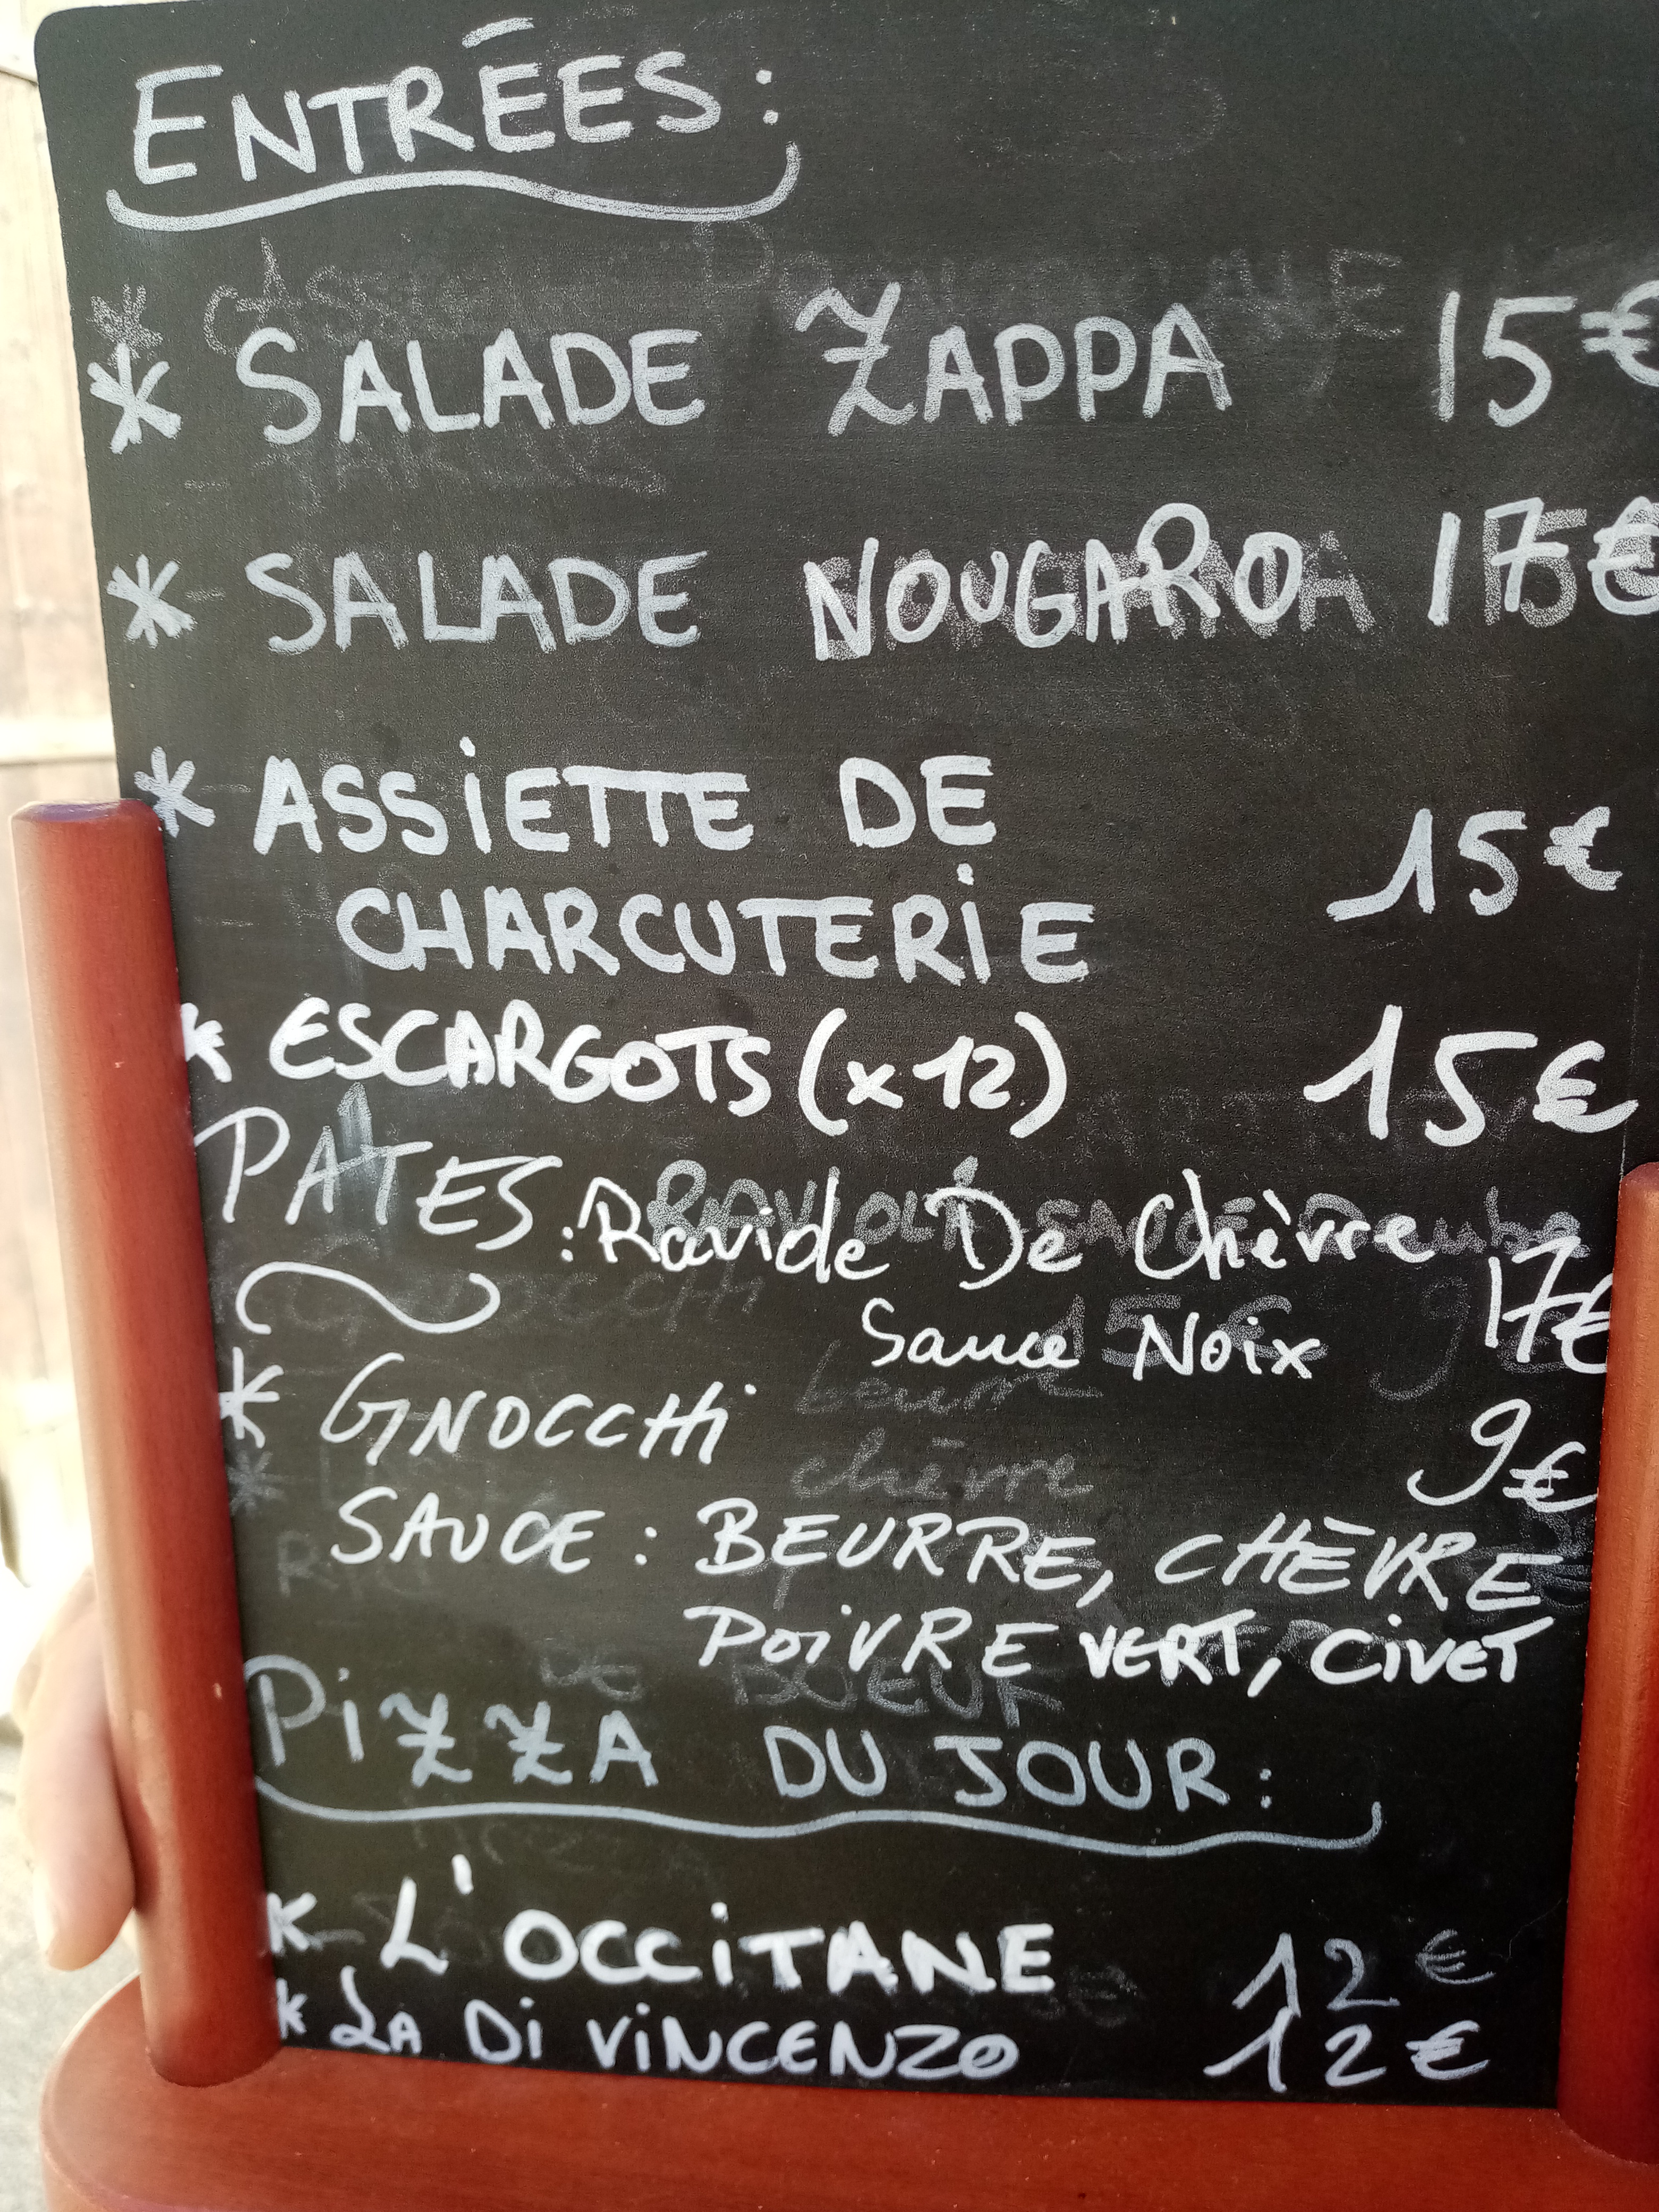 ENTRÉES:
* SALADE ZAPPA 15€
* SALADE NOUGARO 17€
* ASSIETTE DE
CHARCUTERIE 15€
* ESCARGOTS (x12) 15€
PATES : Raviole De Chèvre
Sauce Noix 17€
* GNOCCHi 9€
SAUCE : BEURRE, CHÈVRE
POiVRE VERT, CiVET
PiZZA DU JOUR :
* L'OCCiTANE 12€
* LA Di ViNCENZO 12€